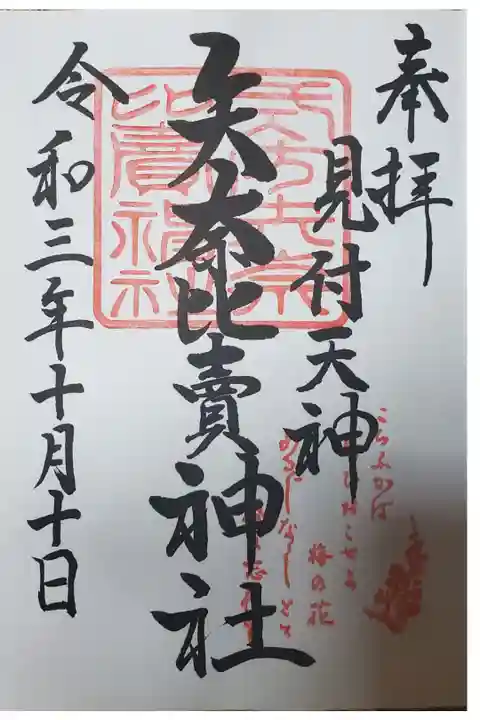 奉拝
見付天神
矢奈比賣神社
令和三年十月十日
こちふかば
おこせよ
梅の花
あるじなしとて